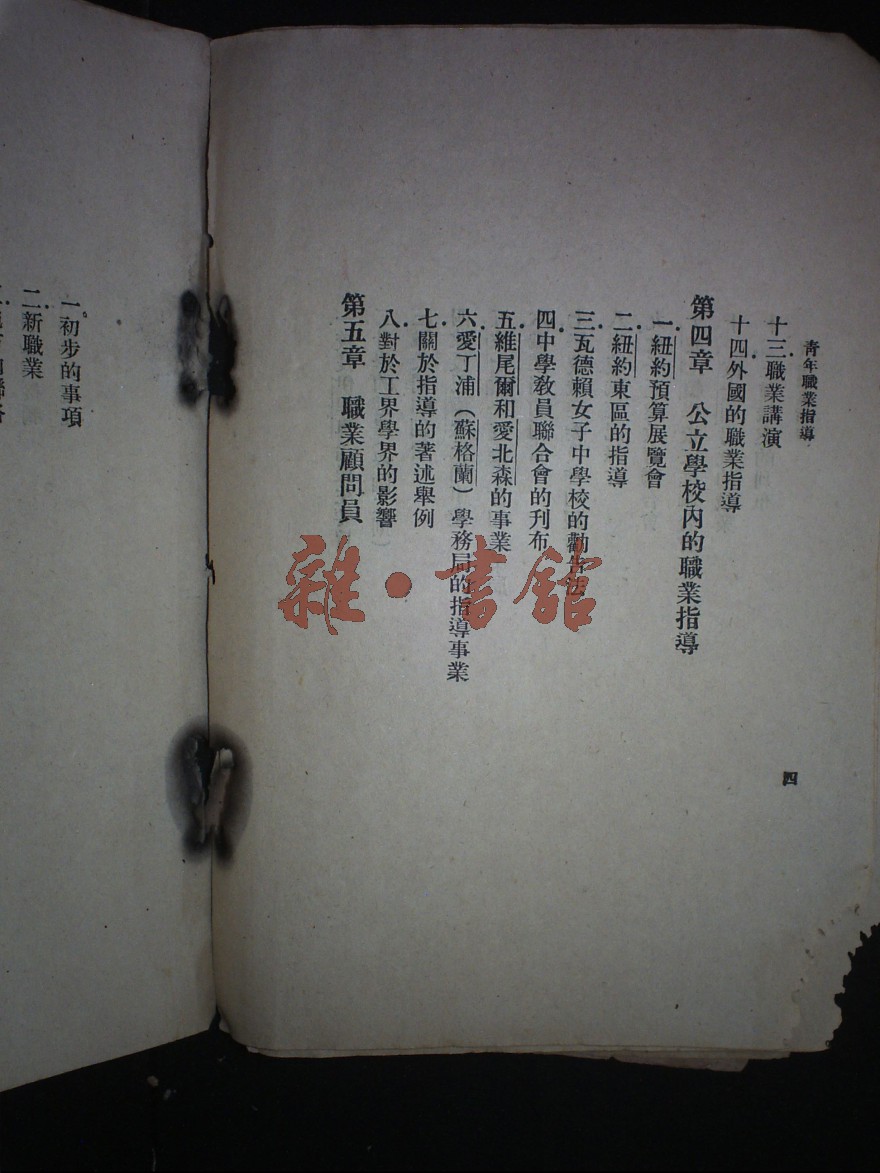 青年職業指導
十三.職業講演
十四.外國的職業指導
第四章 公立學校內的職業指導
一.紐約預算展覽會
二.紐約東區的指導
三.瓦德賴女子中學校的勸告法
四.中學教員聯合會的刋布
五.維尾爾和愛北森的事業
六.愛丁浦(蘇格蘭)學務局的指導事業
七.關於指導的著述舉例
八.對於工界學界的影響
第五章 職業顧問員
四
一.初步的事項
二.新職業
雜·書館